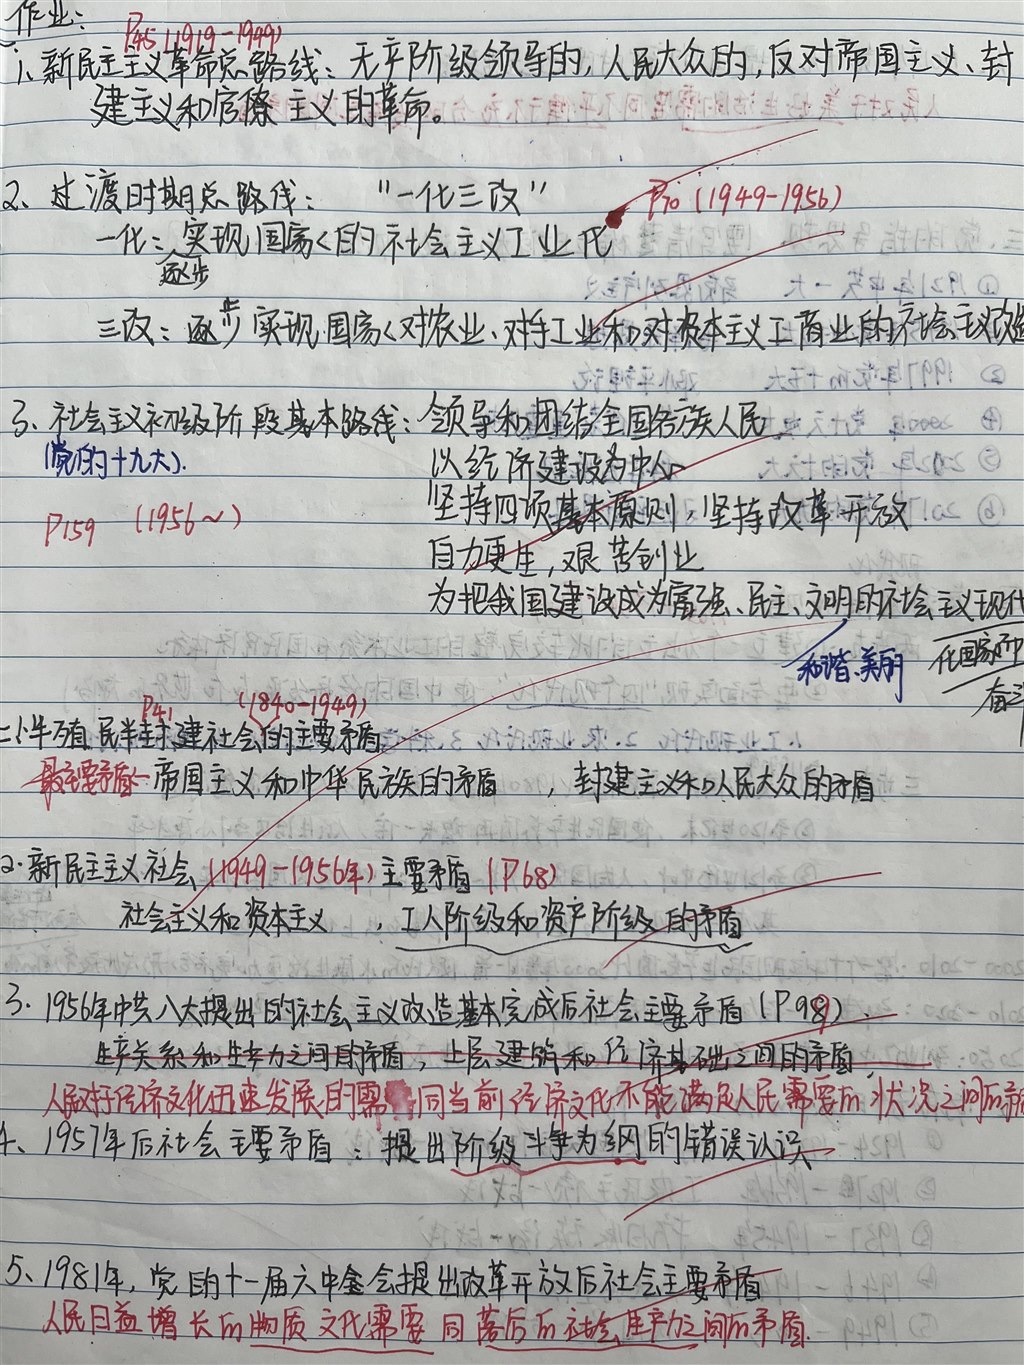 作业：
P45 (1919-1949)
1、新民主主义革命总路线：无产阶级领导的，人民大众的，反对帝国主义、封
建主义和官僚主义的革命。
2、过渡时期总路线： "一化三改" P70 (1949-1956)
一化：实现国家的社会主义工业化
逐步
三改：逐步实现国家对农业、对手工业和对资本主义工商业的社会主义改造
3、社会主义初级阶段基本路线：领导和团结全国各族人民
(党的十九大)． 以经济建设为中心
坚持四项基本原则，坚持改革开放
P159 (1956~)
自力更生，艰苦创业
为把我国建设成为富强、民主、文明的社会主义现代
和谐、美丽 化国家而
奋斗
P41 (1840-1949)
二、1、半殖民半封建社会的主要矛盾
最主要矛盾 帝国主义和中华民族的矛盾 ，封建主义和人民大众的矛盾
2．新民主主义社会 (1949-1956年) 主要矛盾 (P68)
社会主义和资本主义 ，工人阶级和资产阶级的矛盾
3．1956年中共八大提出的社会主义改造基本完成后社会主要矛盾 (P98)．
生产关系和生产力之间的矛盾，上层建筑和经济基础之间的矛盾
人民对于经济文化迅速发展的需 同当前经济文化不能满足人民需要的状况之间的矛盾
4、1957年后社会主要矛盾：提出阶级斗争为纲的错误认识
5、1981年，党的十一届六中全会提出改革开放后社会主要矛盾
人民日益增长的物质文化需要同落后的社会生产力之间的矛盾．